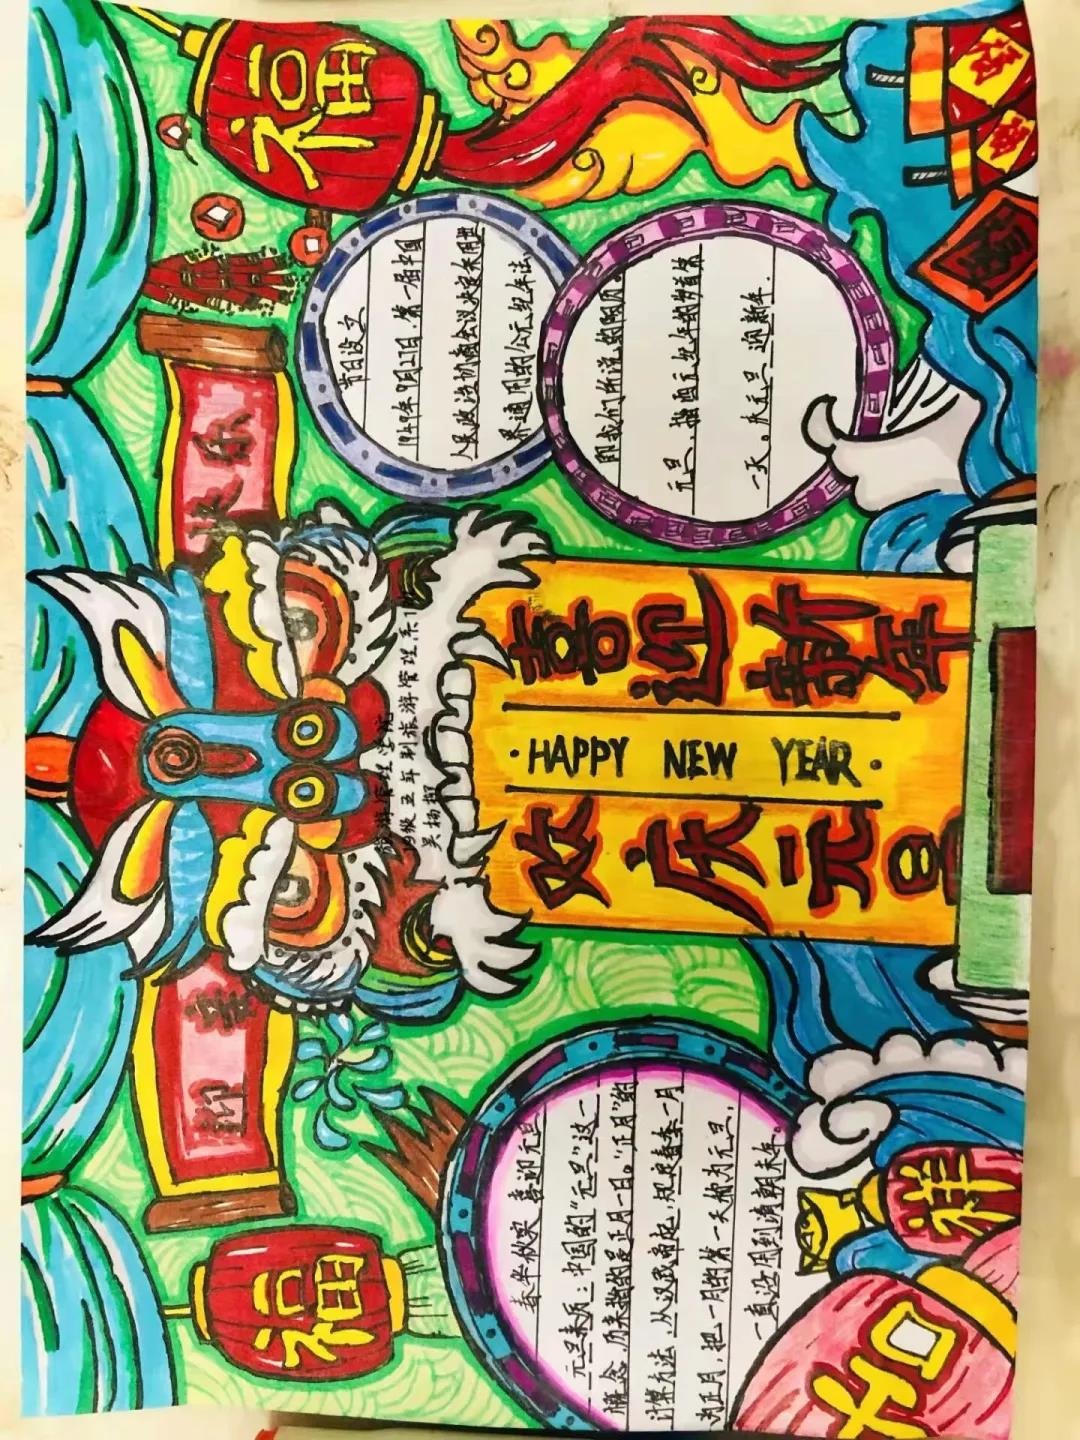 福
福
旅游管理学院
级五年制旅游管理系1
喜迎新年
HAPPY NEW YEAR
欢庆元旦
春华秋实 喜迎元旦
元旦来历：中国的“元旦”这一
概念，历来指的是正月一日。“正月”的
计算方法，从汉武帝起，规定春季一月
为正月，把一月的第一天称为元旦，
一直沿用到清朝末年。
节日设立
1949年9月27日，第一届中国
人民政治协商会议决定采用世
界通用的公元纪年法，
即我们所说的阳历。
元旦，指西元纪年的岁首第
一天。庆元旦 迎新年.
祥